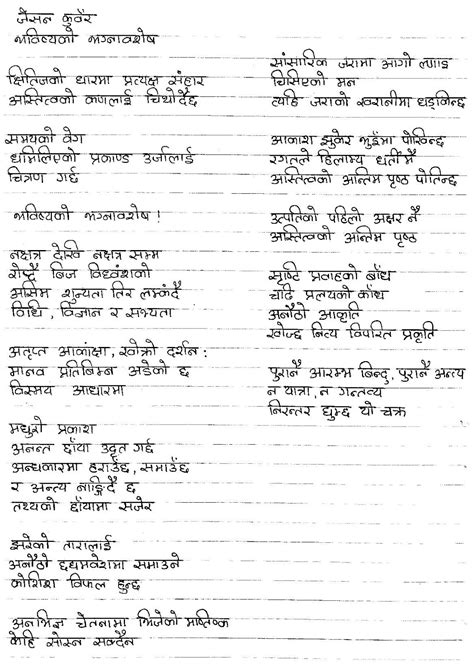 जेसन कुवँर
भविष्यको भग्नावशेष
क्षितिजको धारमा प्रत्यक्ष संहार
अस्तित्वको कणलाई चिथोर्दैछ
समयको वेग
धमिलिएको प्रकाण्ड उर्जालाई
चित्रण गर्छ
भविष्यको भग्नावशेष !
नक्षत्र देखि नक्षत्र सम्म
रोप्दै बिज विध्वंशको
असिम शुन्यता तिर लम्कंदै
विधि, विज्ञान र सभ्यता
अतृप्त आकांक्षा, खोक्रो दर्शन :
मानव प्रतिबिम्ब अडेको छ
विस्मय आधारमा
मधुरो प्रकाश
अनन्त छाँया उदृत गर्छ
अन्धकारमा हराउँछ, समाउँछ
र अन्त्य नाङ्गिदै छ
तथ्यको छाँयामा सजेर
झरेको तारालाई
अनौठो छद्मभेशमा समाउने
कोशिश विफल हुन्छ
अनभिज्ञ चेतनामा भिजेको मष्तिष्क
केहि सोस्न सक्दैन
सांसारिक जरामा आगो लगाइ
चिसिएको मन
त्यहि जराको खरानीमा धड्किन्छ
आकाश झुकेर भुइँमा पोखिन्छ
रगतले हिलाम्य धर्तीमै
अस्तित्वको अन्तिम पृष्ठ पोतिन्छ
उत्पतिको पहिलो अक्षर नै
अस्तित्वको अन्तिम पृष्ठ
सृष्टि प्रवाहको बाँध
चढि प्रलयको काँध
अनौठो आकृति
खोज्छ नित्य विपरित प्रकृति
पुरानै आरम्भ बिन्दु, पुरानै अन्त्य
न यात्रा, न गन्तव्य
निरन्तर घुम्छ यो चक्र